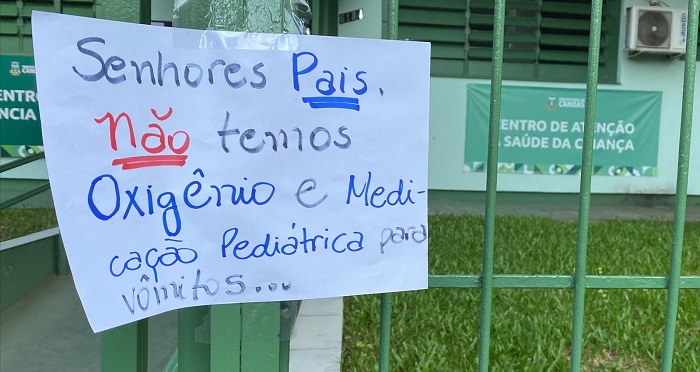 Senhores Pais.
Não temos
Oxigênio e Medi-
cação Pediátrica para
vômitos...
CANOAS
ENTRO
NCIA
CANOAS
ENTRO DE ATENÇÃO
SAÚDE DA CRIANÇA